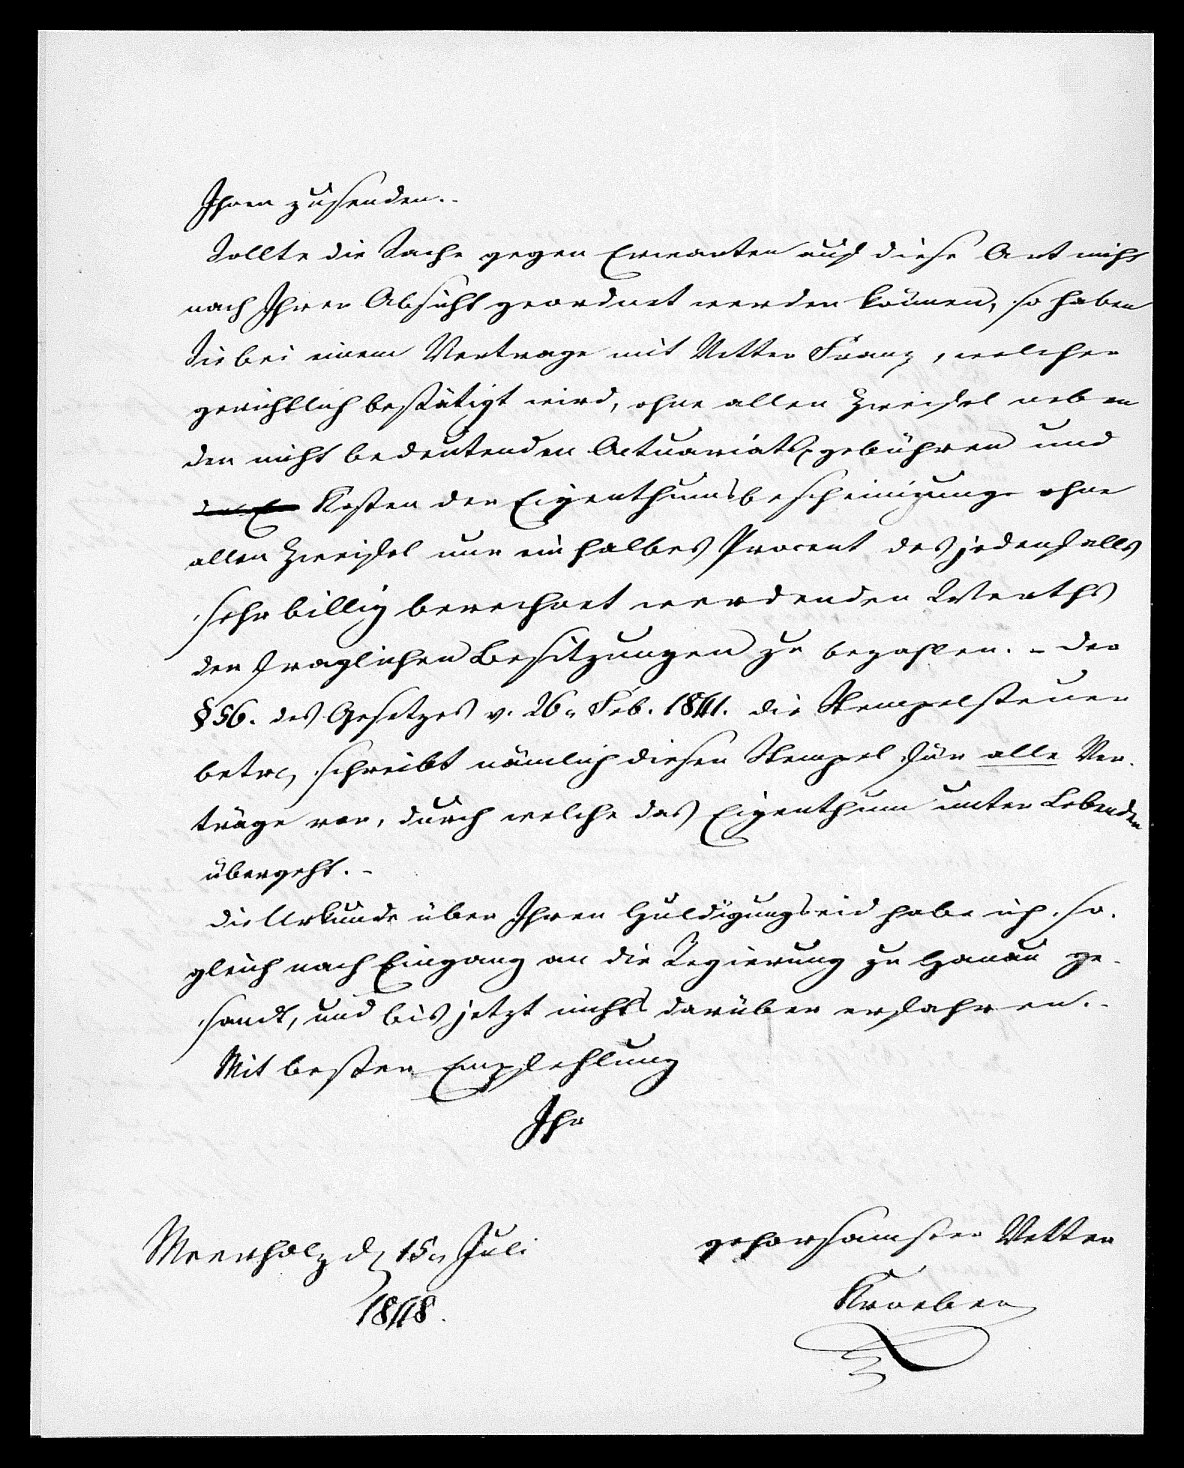 Ihnen zusenden. -
Sollte die Sache gegen Erwarten auf diese Art nicht
nach Ihrer Absicht geordnet werden können, so haben
Sie bei einem Vertrage mit Vetter Franz, welcher
gerichtlich bestätigt wird, ohne allen Zweifel neben
den nicht bedeutenden Actuariatsgebühren und
Kosten der Eigenthumsbescheinigung ohne
allen Zweifel nur ein halbes Procent des jedenfalls
sehr billig berechnet werdenden Werths
der fraglichen Besitzungen zu bezahlen. - Der
§ 56. des Gesetzes v. 26n Feb. 1841. die Stempelsteuer
betr., schreibt nämlich diesen Stempel für alle Ver-
träge vor, durch welche das Eigenthum unter Lebenden
übergeht. -
Die Urkunde über Ihren Huldigungseid habe ich so-
gleich nach Eingang an die Regierung zu Hanau ge-
sandt, und bis jetzt nichts darüber erfahren. -
Mit bester Empfehlung
Ihr
gehorsamster Vetter
Meerholz d. 15n Juli
1848.
Kroeber